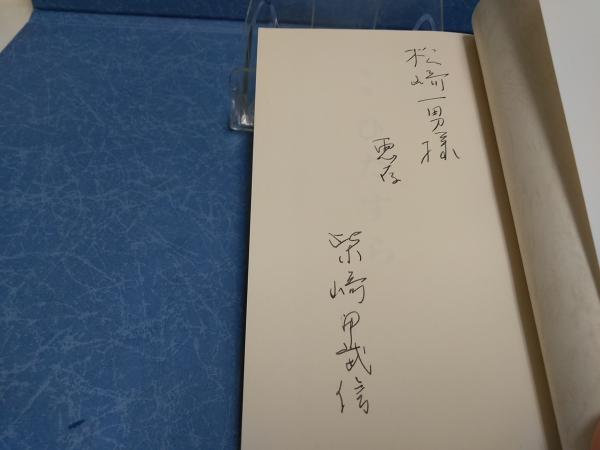 松﨑一男様
恵存
柴﨑甲武信